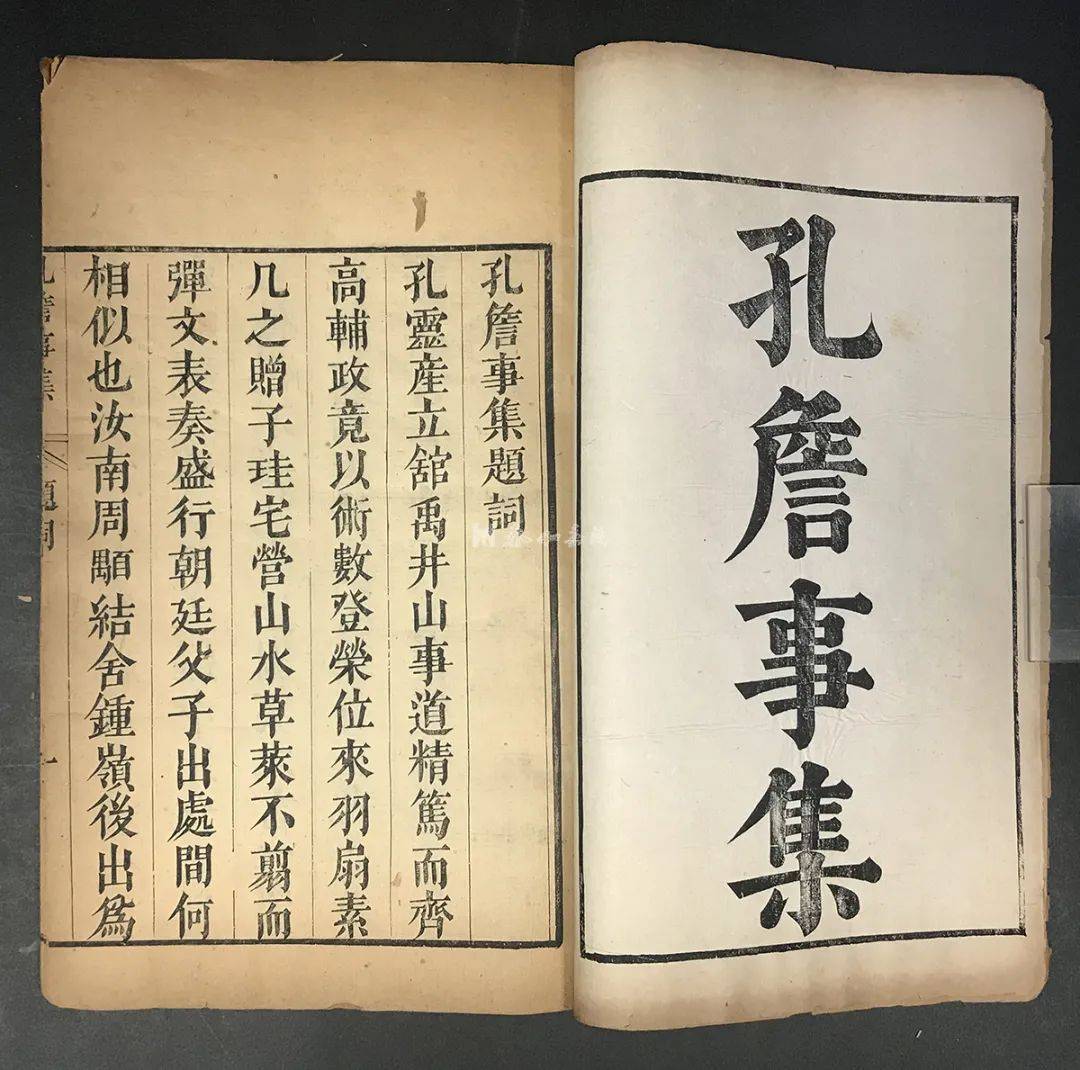 孔詹事集
孔詹事集題詞
孔靈産立舘禹井山事道精篤而齊
高輔政竟以術數登榮位來羽扇素
几之贈子珪宅營山水草萊不翦而
彈文表奏盛行朝廷父子出處間何
相似也汝南周顒結舍鍾嶺後出爲
孔詹事集
題詞
一